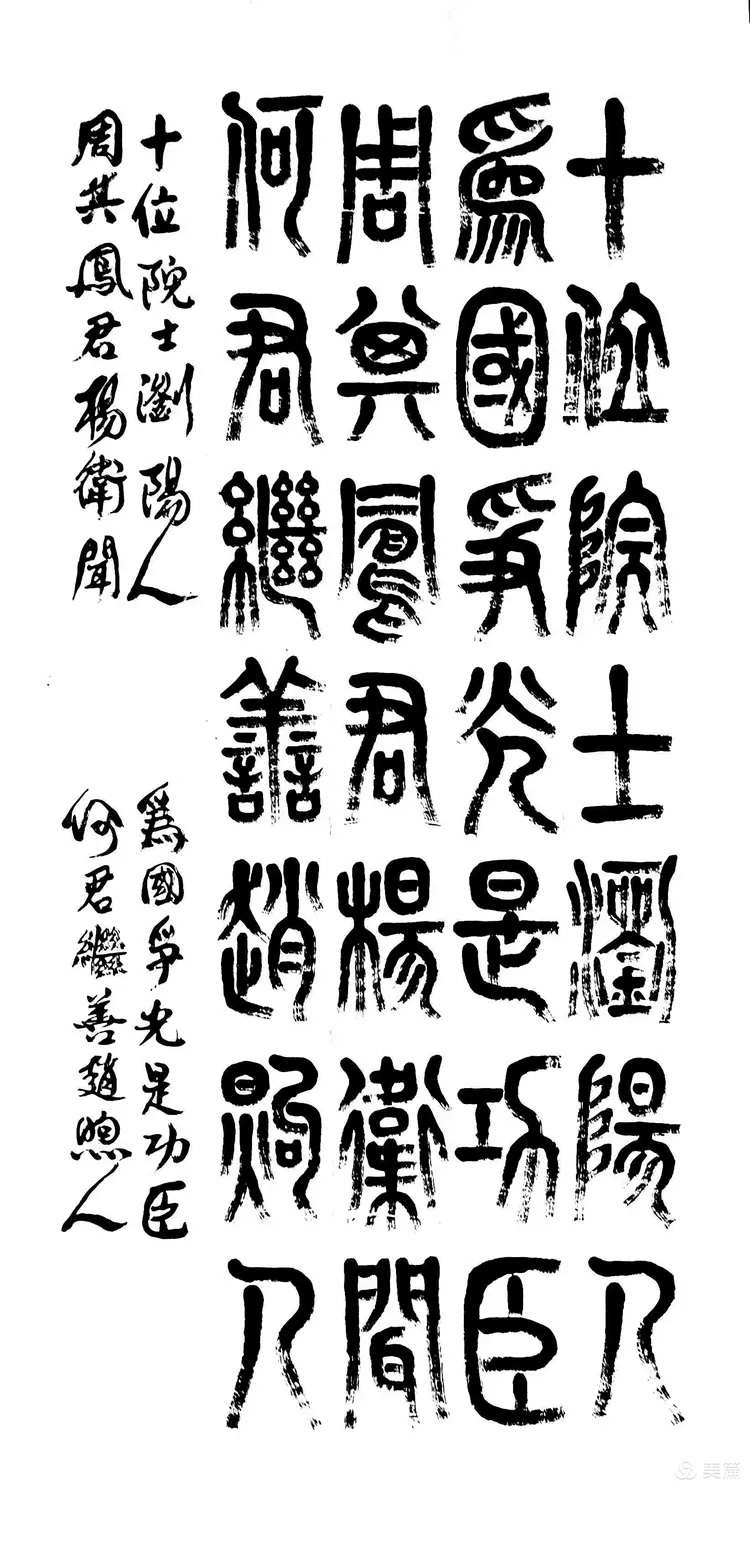 十位院士瀏陽人
爲國爭光是功臣
周其鳳君楊衛聞
何君繼善趙煦人
十位院士瀏陽人
爲國爭光是功臣
周其鳳君楊衛聞
何君繼善趙煦人
美篇